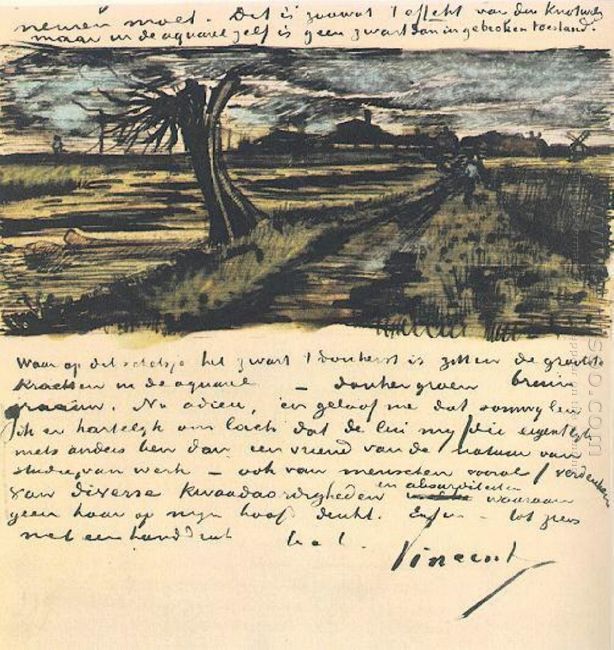 nemen moet. Dit is zoowat 't effekt van den Knotwilg
maar in de aquarel zelf is geen zwart dan in gebroken toestand.
Waar op dit schetsje het zwart 't donkerst is zitten de grootste
krachten in de aquarel — donkergroen bruin
graauw. Nu adieu, en geloof me dat somwylen
ik er hartelyk om lach dat de lui my die eigentlyk
niets anders ben dan een vriend van de natuur van
studie, van werk — ook van menschen vooral / verdenken
van diverse kwaadaardigheden en absurditeiten waaraan
geen haar op myn hoofd denkt. Enfin — tot ziens
met een handdruk
Vincent